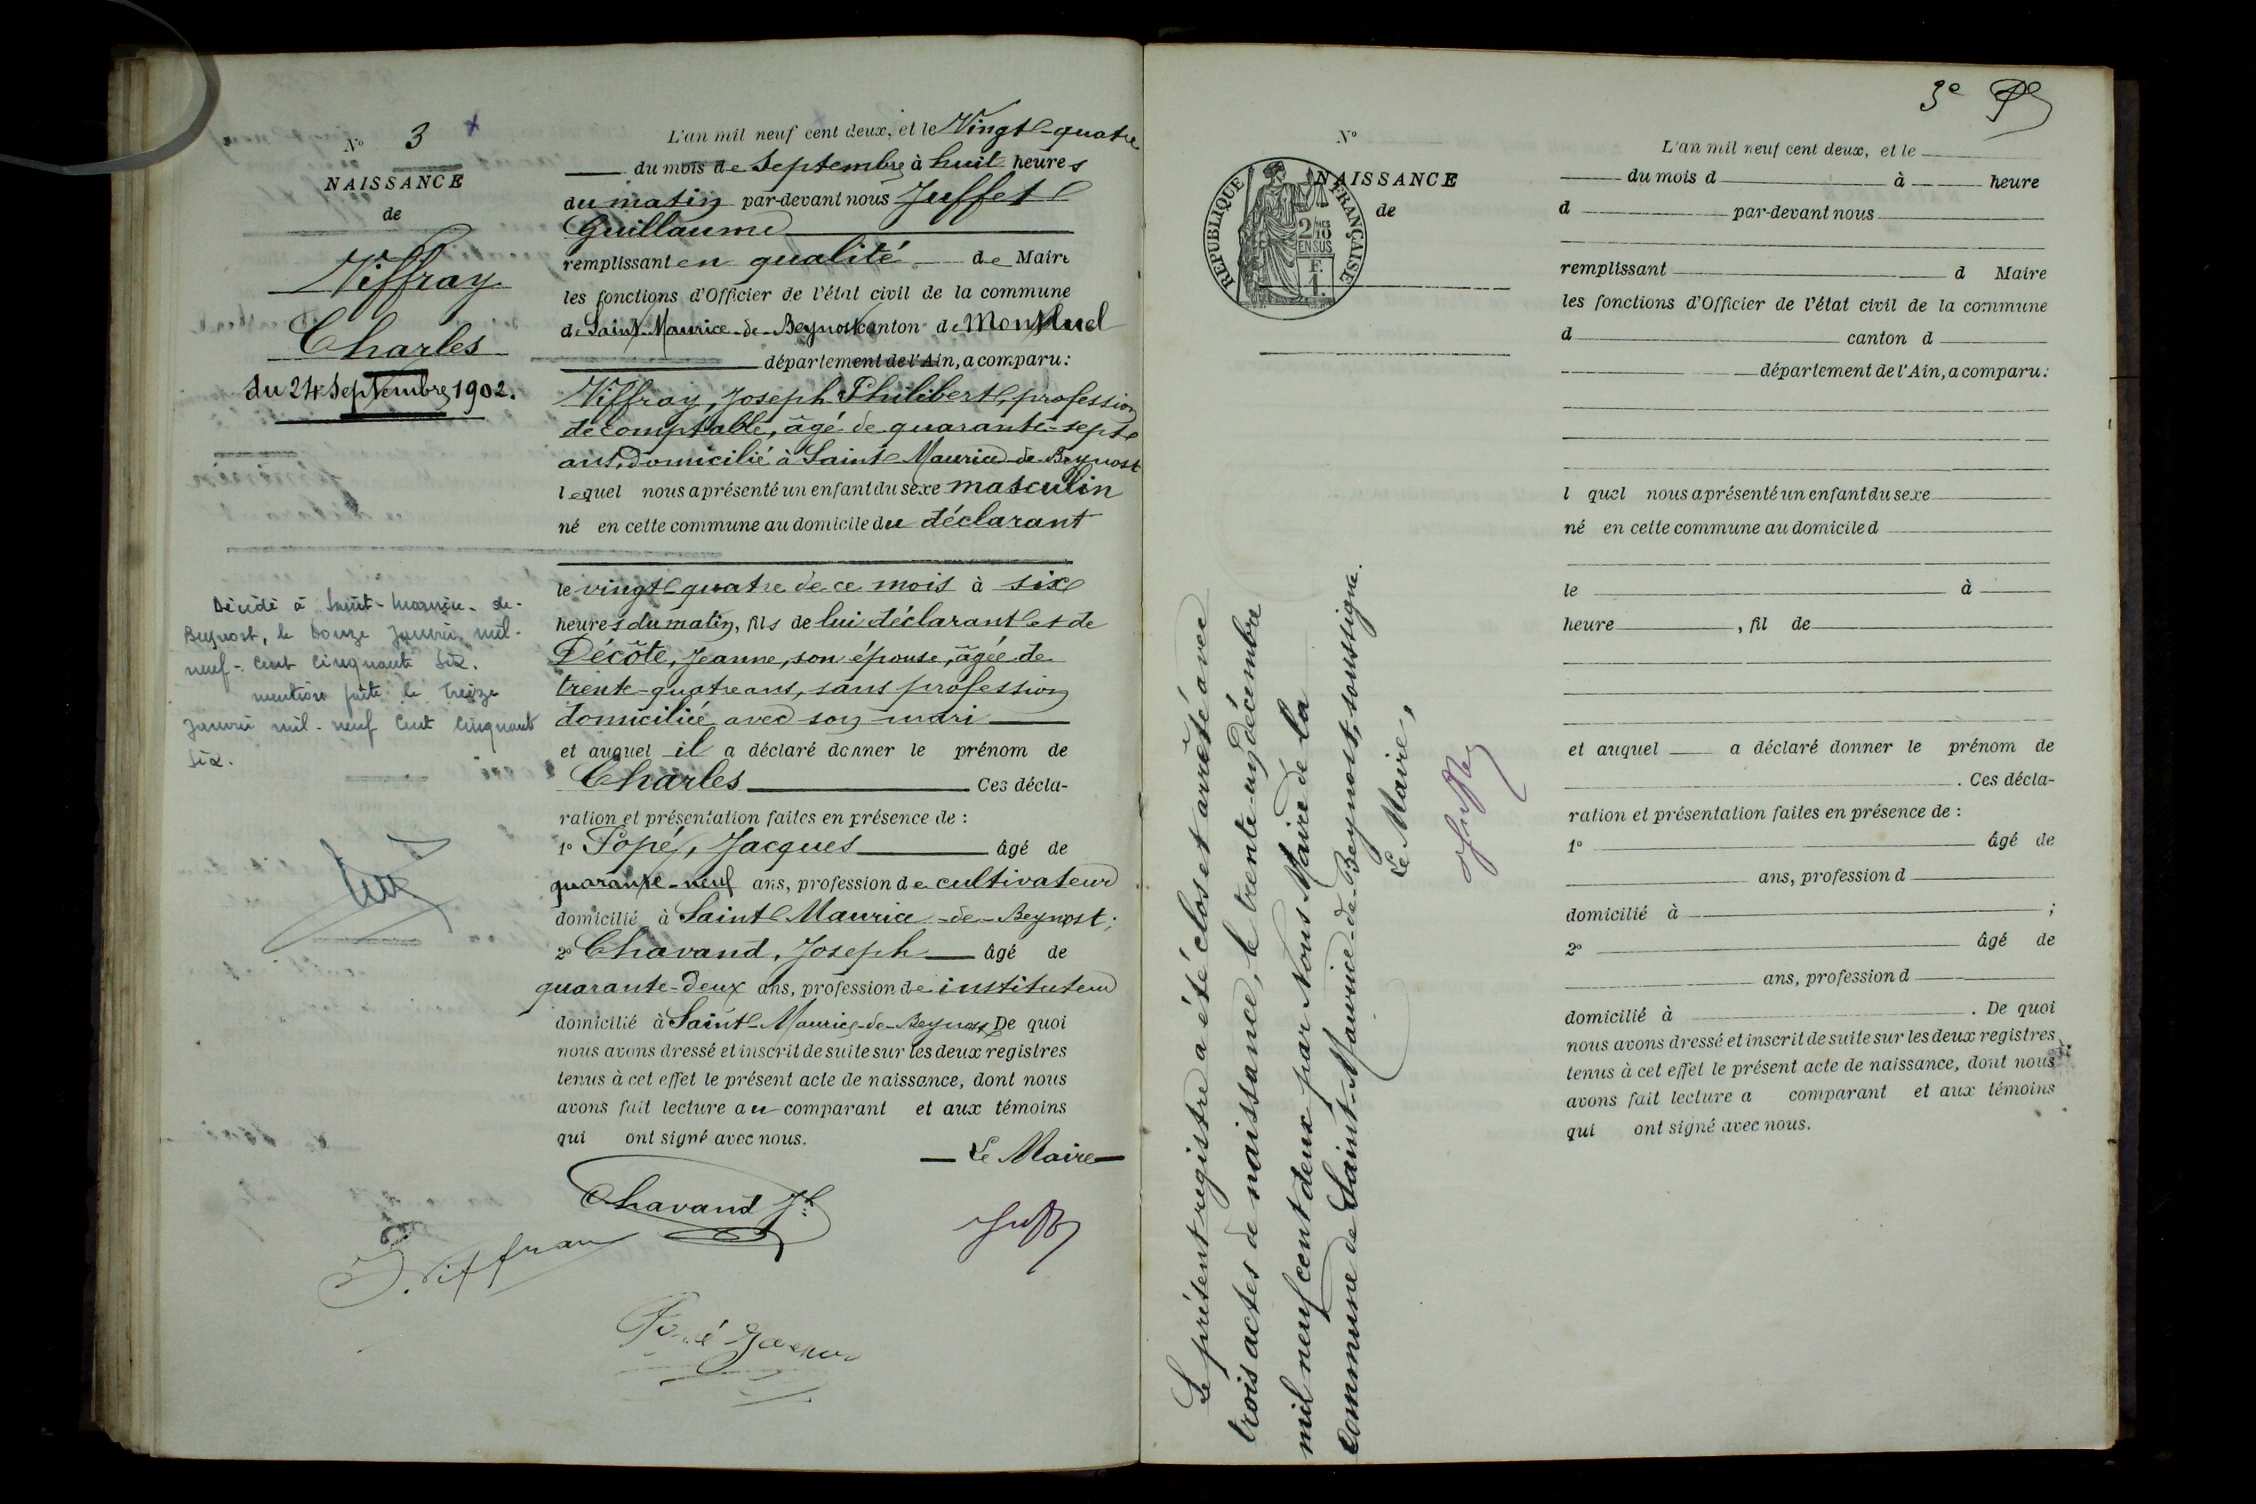 N° 3
NAISSANCE
de
Viffray
Charles
du 24 Septembre 1902.
Décédé à Saint-Maurice-de-
Beynost, le Douze Janvier mil-
neuf-Cent Cinquante Six.
mention faite le Treize
Janvier mil-neuf Cent Cinquante
Six.
L'an mil neuf cent deux, et le Vingt-quatre
du mois de Septembre à huit heures
du matin par-devant nous Juffet
Guillaume
remplissant en qualité de Maire
les fonctions d'Officier de l'état civil de la commune
de Saint-Maurice-de-Beynost canton de Montluel
département de l'Ain, a comparu :
Viffray, Joseph Philibert, profession
de comptable, âgé de quarante-sept
ans, domicilié à Saint Maurice-de-Beynost
lequel nous a présenté un enfant du sexe masculin
né en cette commune au domicile du déclarant
le vingt quatre de ce mois à six
heures du matin, fils de lui déclarant et de
Décôte, Jeanne, son épouse, âgée de
trente-quatre ans, sans profession
domiciliée avec son mari
et auquel il a déclaré donner le prénom de
Charles Ces décla-
ration et présentation faites en présence de :
1° Popé, Jacques âgé de
quarante-neuf ans, profession de cultivateur
domicilié à Saint Maurice-de-Beynost ;
2° Chavand, Joseph âgé de
quarante-deux ans, profession de instituteur
domicilié à Saint-Maurice-de-Beynost De quoi
nous avons dressé et inscrit de suite sur les deux registres
tenus à cet effet le présent acte de naissance, dont nous
avons fait lecture au comparant et aux témoins
qui ont signé avec nous.
Le Maire
Chavand Jh
Juffet
J. Viffray
Popé Jacques
3e
N°
NAISSANCE
de
REPUBLIQUE FRANÇAISE
2/10 EN SUS
F. 1.
Le présent registre a été clos et arrêté avec
trois actes de naissance, le trente-un décembre
mil neuf cent deux par Nous Maire de la
commune de Saint-Maurice-de-Beynost, soussigné.
Le Maire,
Juffet
L'an mil neuf cent deux, et le
du mois d à heure
d par-devant nous
remplissant d Maire
les fonctions d'Officier de l'état civil de la commune
d canton d
département de l'Ain, a comparu :
l quel nous a présenté un enfant du sexe
né en cette commune au domicile d
le à
heure , fil de
et auquel a déclaré donner le prénom de
. Ces décla-
ration et présentation faites en présence de :
1° âgé de
ans, profession d
domicilié à ;
2° âgé de
ans, profession d
domicilié à . De quoi
nous avons dressé et inscrit de suite sur les deux registres
tenus à cet effet le présent acte de naissance, dont nous
avons fait lecture a comparant et aux témoins
qui ont signé avec nous.